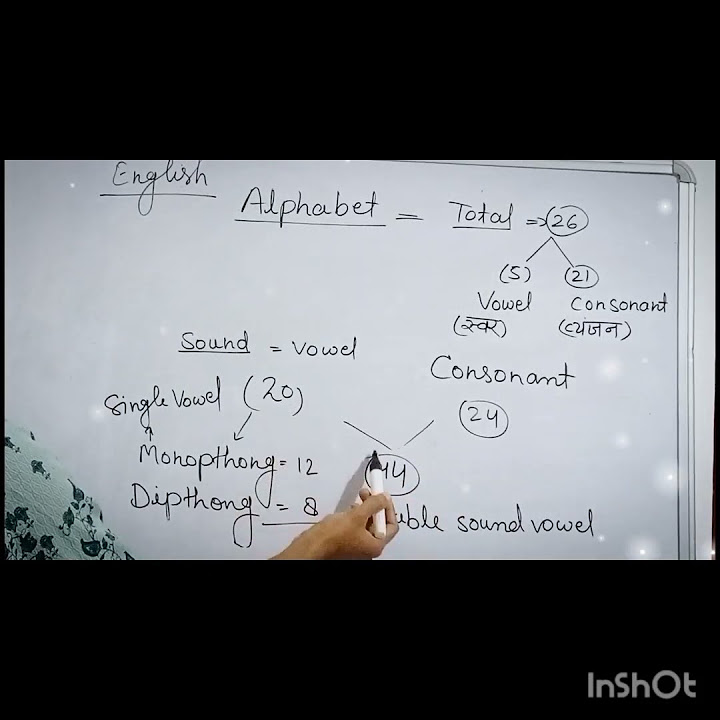 English
Alphabet = Total => 26
(5) 21
Vowel Consonant
(स्वर) (व्यंजन)
Sound = Vowel Consonant
Single Vowel (20) 24
Monopthong = 12
Dipthong = 8 sound vowel
InShOt